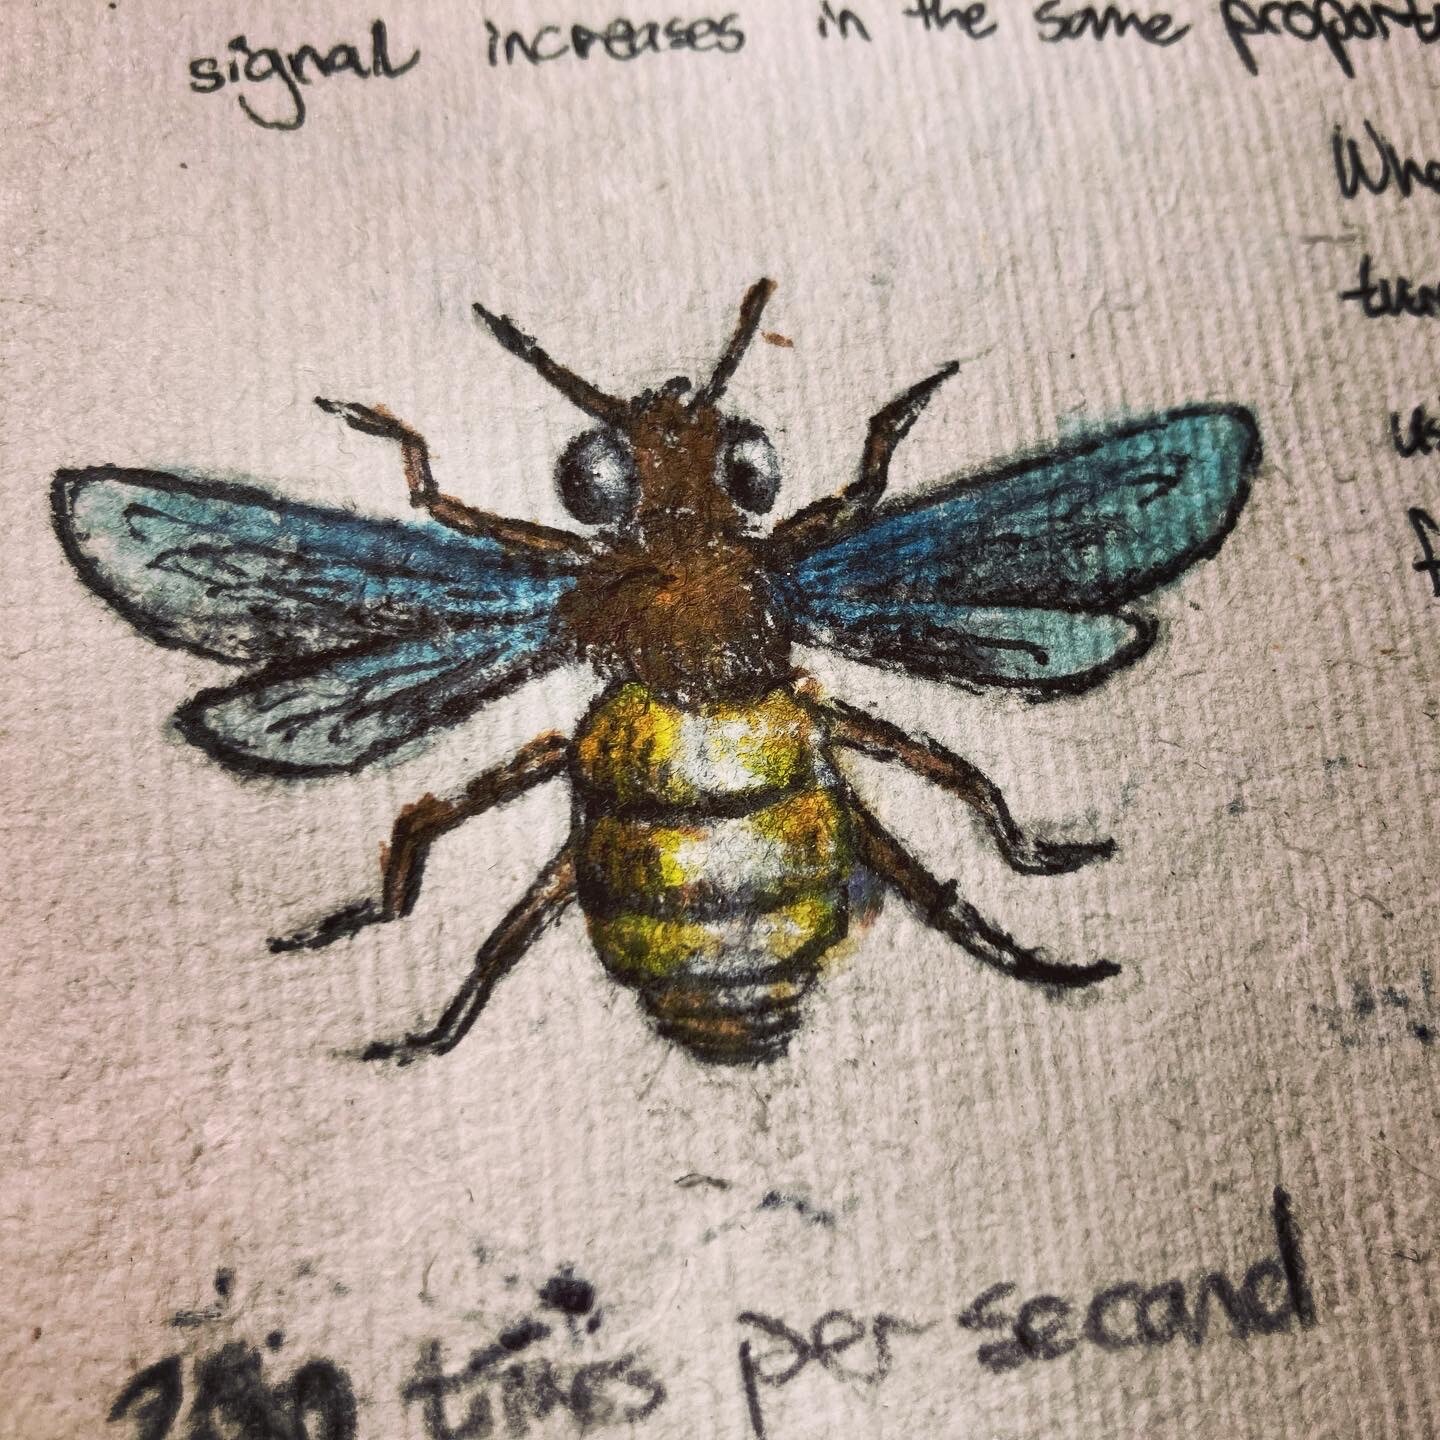 signal increases in the same proport
Whe
tur
us
f
times per second